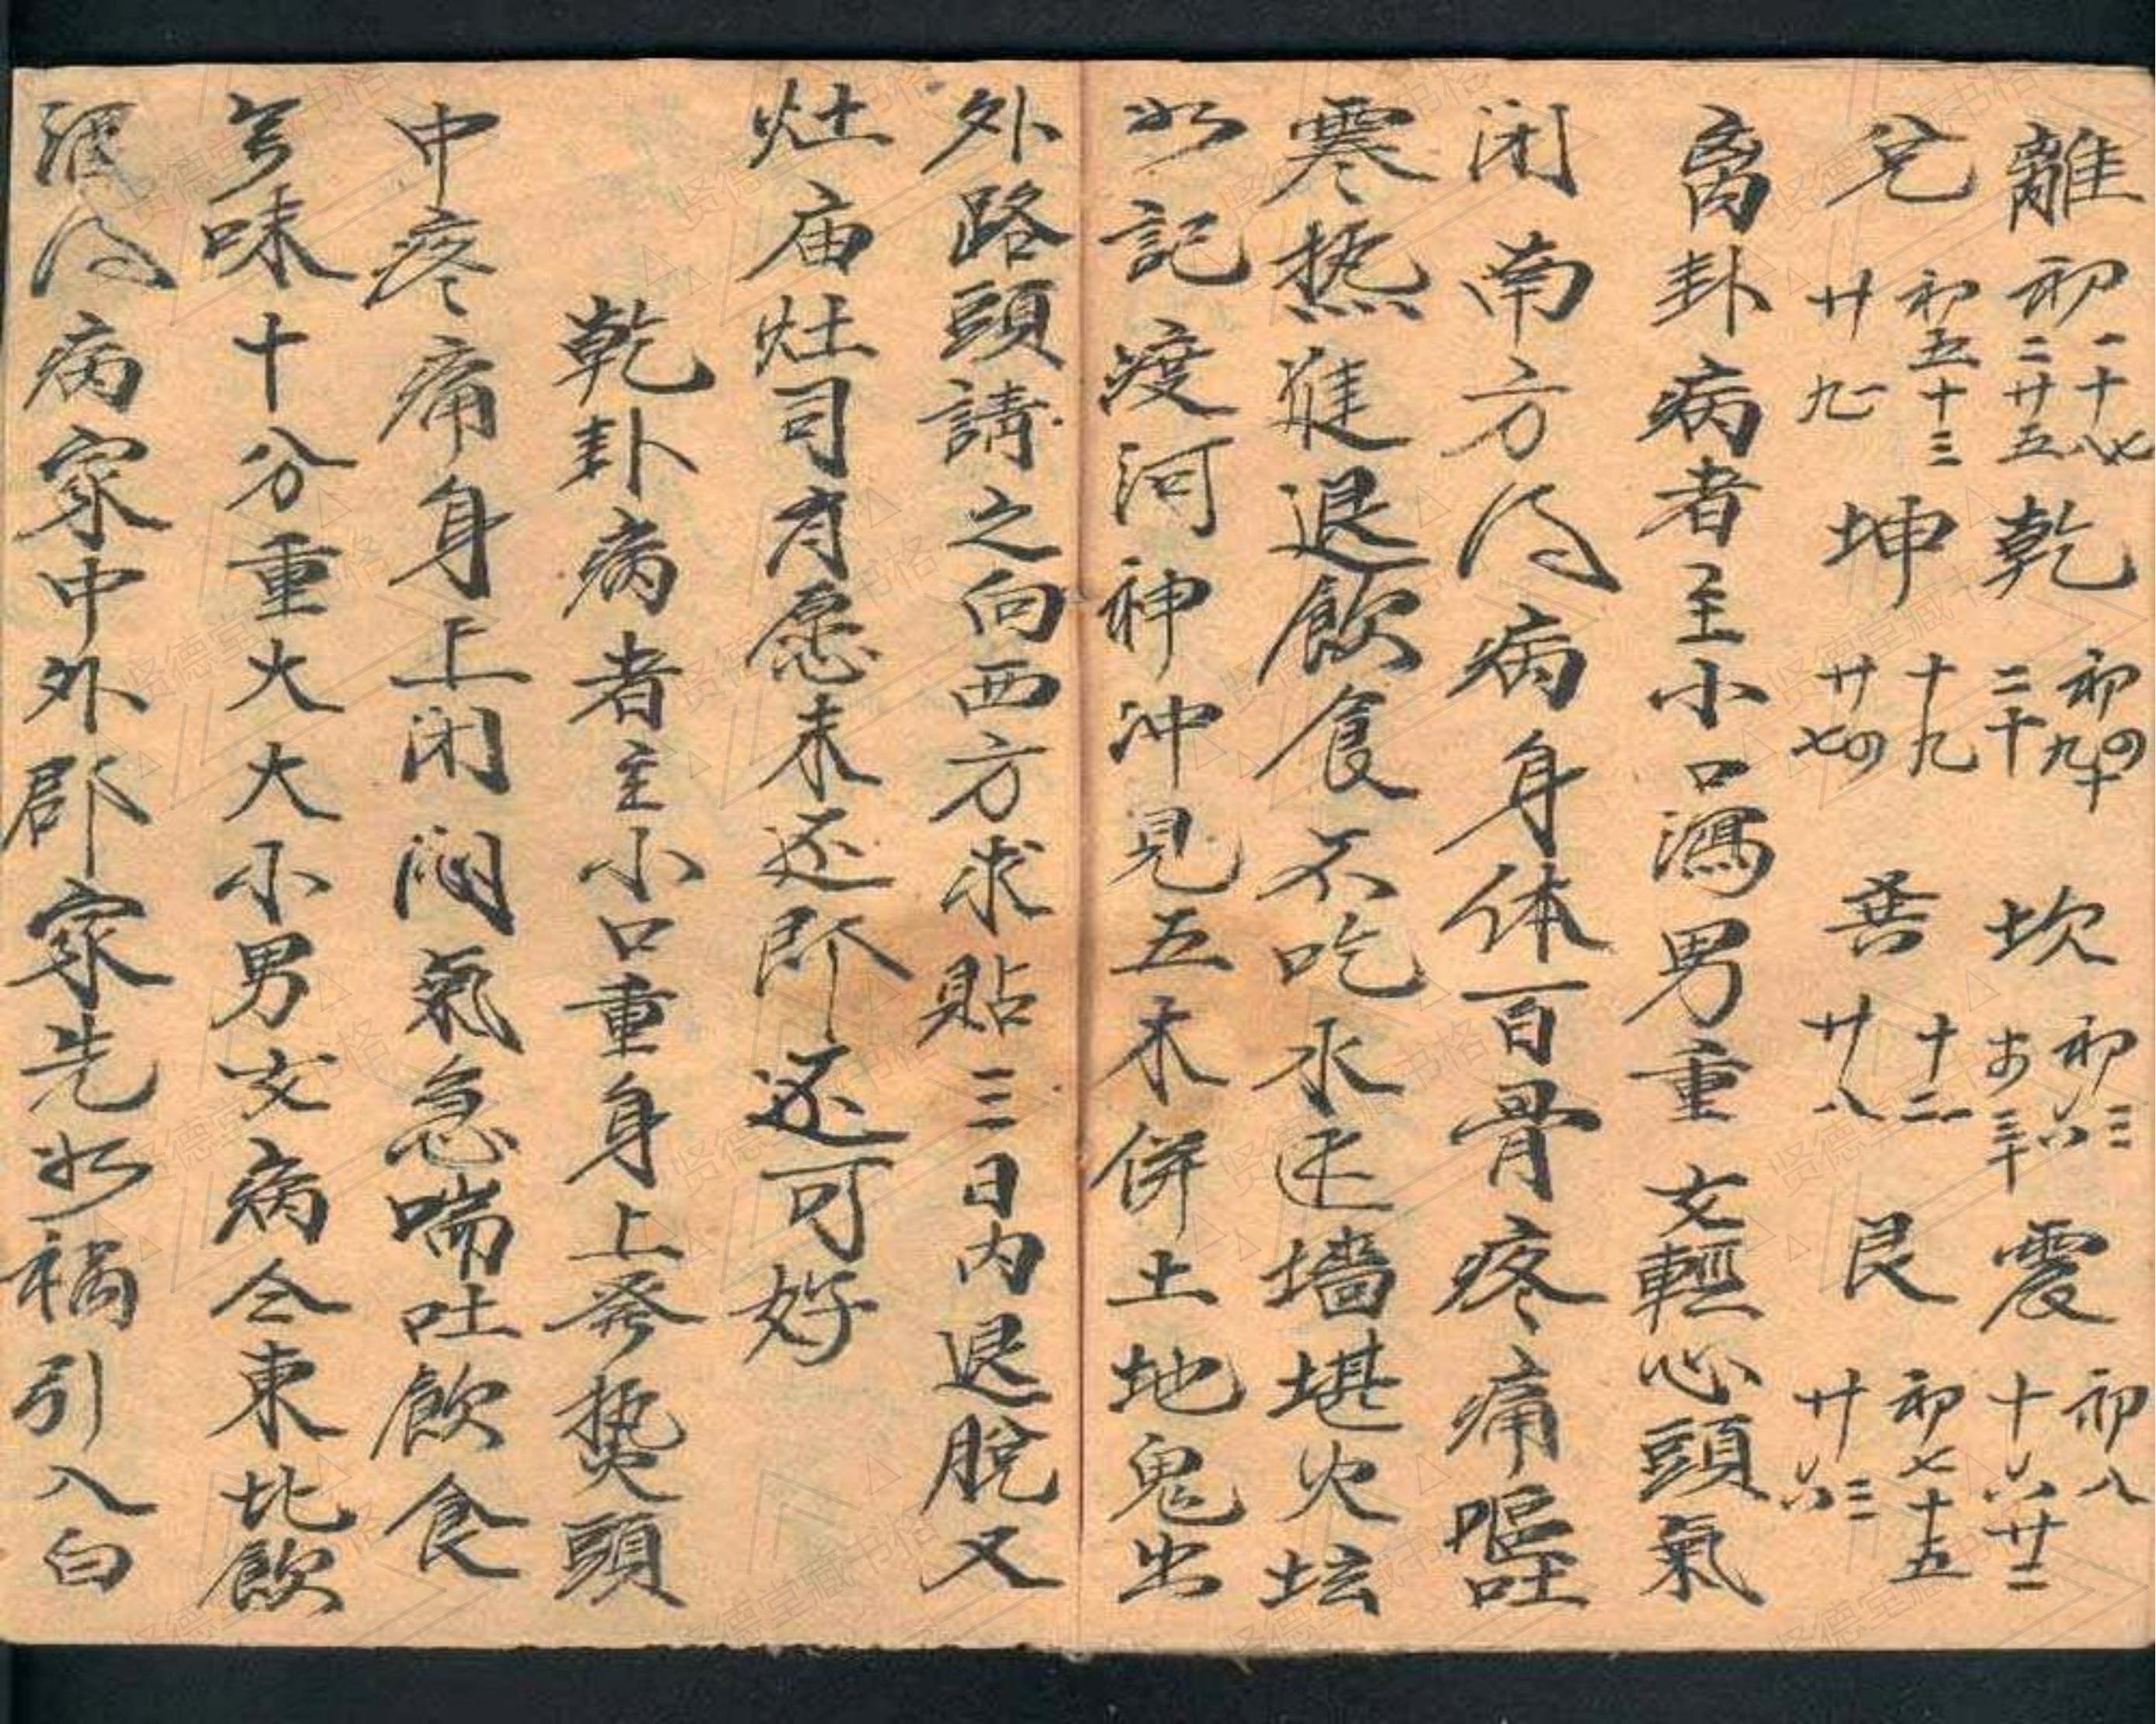 離 初一十七二十八廿五 乾 初四九十二十 坎 初三六廿三三十 震 初八十六廿二
兌 初五十三廿一廿九 坤 十九廿四廿七 巽 十二廿八 艮 初七十五廿三廿六
离卦病者至小口瀉男重女輕心頭氣
闭南方得病身体百骨疼痛嘔吐
寒热進退飲食不吃水迋墻堪火坛
水記渡河神冲見五木併土地鬼出
外路頭請之向西方求貼三日内退脫又
灶庙灶司有愿未还即还可好
乾卦病者主小口重身上發熱頭
中疼痛身上闭悶氣急喘吐飲食
無味十分重大大小男女病令東北飲
酒得病家中外郡家先水禍引入白